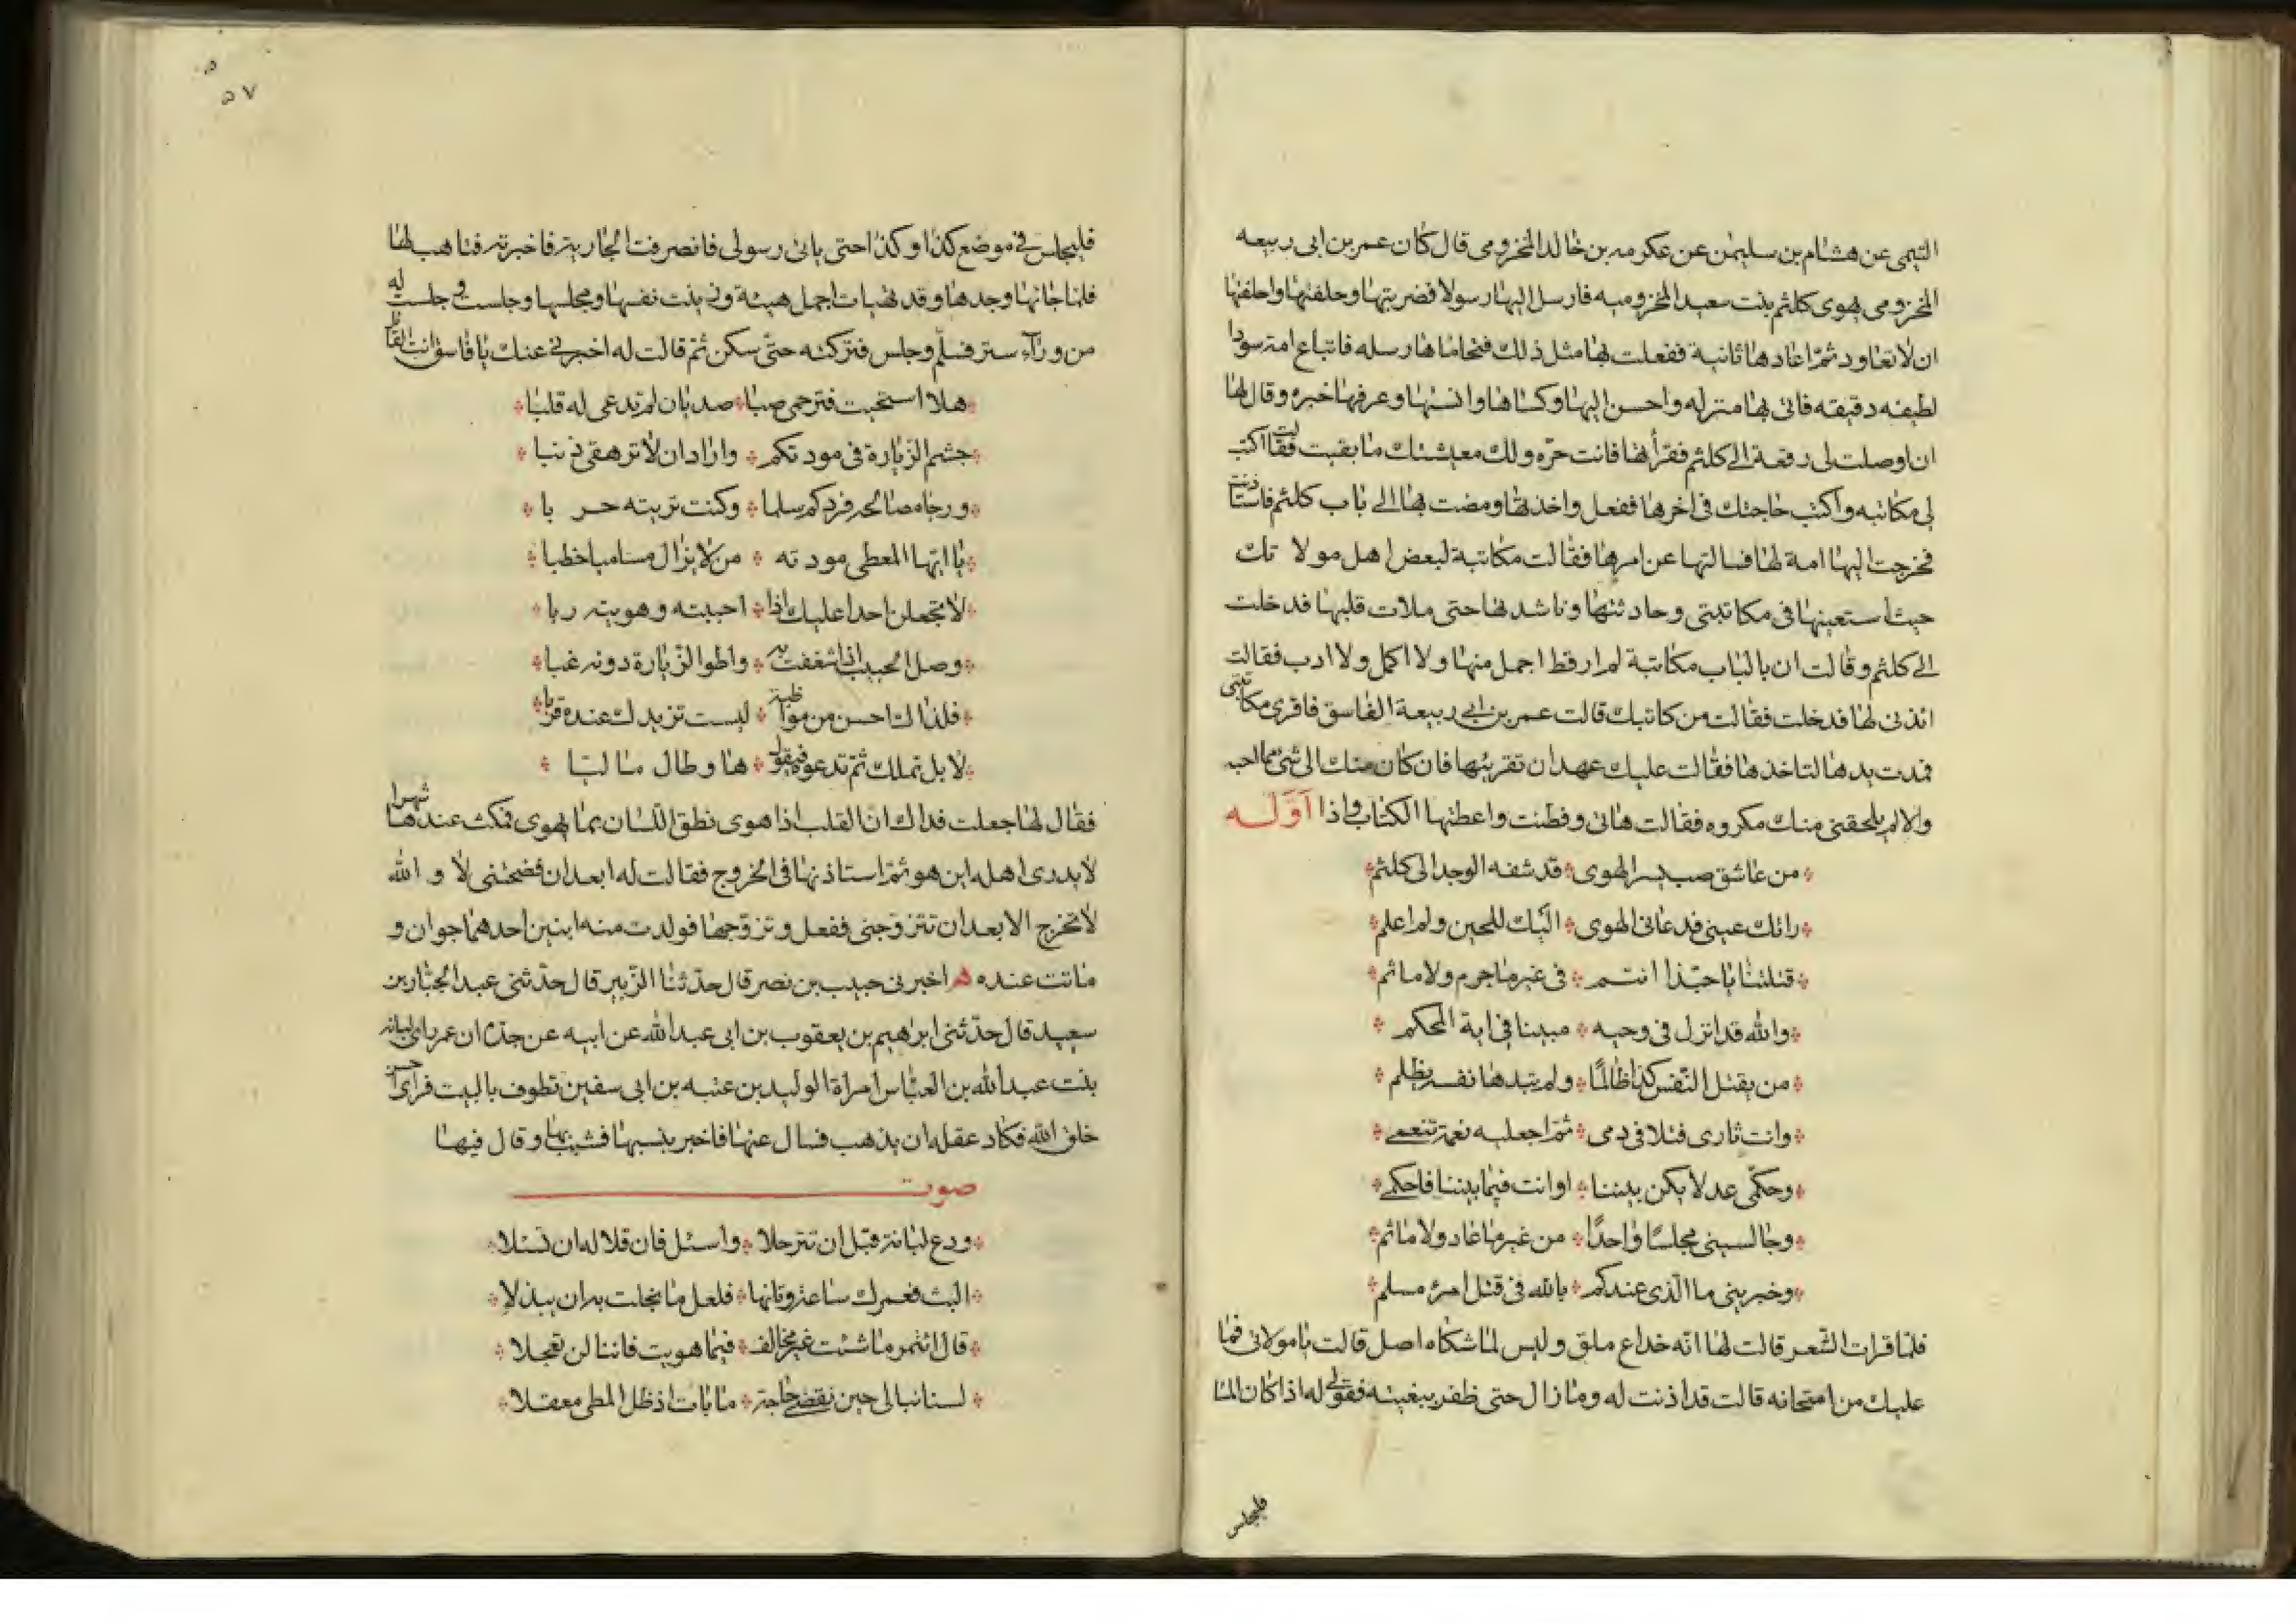 التيمى عن هشام بن سليمن عن عكرمه بن خالد المخزومى قال كان عمر بن ابى ربيعه
المخزومى يهوى كلثم بنت سعيد المخزوميه فارسل اليها رسولا فضربتها وحلقتها واحلفتها
ان لا تعاود ثم اعادها ثانية ففعلت بها مثل ذلك فتحاماها رسله فابتاع امة سودا
لطيفه دقيقه فاتى بها منزله واحسن اليها وكساها وانسها وعرفها خبره وقال لها
ان اوصلت لى رقعة الى كلثم فقرأتها فانت حرّه ولك معيشتك ما بقيت فقالت اكتب
لى مكاتبه واكتب حاجتك فى اخرها ففعل واخذتها ومضت بها الى باب كلثم فاستاذنت
فخرجت اليها امة لها فسالتها عن امرها فقالت مكاتبة لبعض اهل مولاتك
جيث استعينها فى مكاتبتى وحادثتها وناشدتها حتى ملات قلبها فدخلت
الى كلثم وقالت ان بالباب مكاتبة لم ار قط اجمل منها ولا اكمل ولا ادب فقالت
ائذنى لها فدخلت فقالت من كاتبك قالت عمر بن ابى ربيعة الفاسق فاقرى مكاتبتى
فمدت يدها لتاخذها فقالت عليك عهد ان تقريها فان كان منك الى شئ مما احبه
والا لم يلحقنى منك مكروه فقالت هاتى وفطنت واعطتها الكتاب واذا اوّله
من عاشق صب يسر الهوى * قد شفه الوجد الى كلثم
راتك عينى فدعانى الهوى * اليك للحين ولم اعلم
قتلتنا يا حبّذا انتم * فى غير ما جرم ولا ماثم
والله قد انزل فى وحيه * مبينا فى اية المحكم
من يقتل النفس كذا ظالمًا * ولم يقدها نفسه يظلم
وانت ثارى فتلافى دمى * ثم اجعليه نعمة تنعمى
وحكّمى عدلا يكن بيننا * او انت فيما بيننا فاحكمى
وجالسينى مجلسًا واحدًا * من غير ما عاد ولا ماثم
وخبرينى ما الّذى عندكم * بالله فى قتل امرئ مسلم
فلمّا قرات الشعر قالت لها انّه خداع ملق وليس لما شكاه اصل قالت يا مولاتى فما
عليك من امتحانه قالت قد اذنت له وما زال حتى ظفر ببغيته فقولى له اذا كان المسا
فليجلس
٥٧
فليجلس فى موضع كذا وكذا حتى ياتى رسولى فانصرفت الجارية فاخبرته فتاهب لها
فلما جائها وجدها وقد تهيات اجمل هيئة وزينت نفسها ومجلسها وجلست وجلست له
من وراء ستر فسلّم وجلس فتركته حتّى سكن ثم قالت له اخبرنى عنك يا فاسق انت القائل
هلا استحييت فترحمى صبا * صديان لم تدعى له قلبا
جشم الزيارة فى مودتكم * واراد ان لا ترهقى ذنبا
ورجاه صالحه فردكم سلما * وكنت تريته حربا
يا ايها المعطى مودته * من لا يزال مسامبا خطبا
لا تجعلن احدا عليك اذا * احببته وهويته ربا
وصل الحبيب اذا شغفت به * واطوا الزيارة دونه غبا
فلذاك احسن من مواظبة * ليست تزيدك عنده قربا
لا بل تملك ثم تدعوه فيقول * ها وطال ما لبّا
فقال لها جعلت فداك ان القلب اذا هوى نطق اللسان بما يهوى فمكث عندها شهرا
لا يدرى اهله اين هو ثم استاذنها فى الخروج فقالت له ابعد ان فضحتنى لا والله
لا تخرج الا بعد ان تتزوجنى ففعل وتزوجها فولدت منه ابنين احدهما جوان و
ماتت عنده اخبرنى حبيب بن نصر قال حدّثنا الزبير قال حدّثنى عبد الجبّار بن
سعيد قال حدّثنى ابرهيم بن يعقوب بن ابى عبد الله عن ابيه عن جدّه ان عمر راى لبانه
بنت عبد الله بن العبّاس امراة الوليد بن عتبه بن ابى سفين تطوف بالبيت فراى احسن
خلق الله فكاد عقله ان يذهب فسال عنها فاخبر بنسبها فشبب بها وقال فيها
صوت
ودع لبانة قبل ان تترحلا * واسئل فان قلا له ان تسئلا
البث فعمرك ساعة وتانها * فلعل ما بخلت به ان يبذلا
قال ائتمر ما شئت غير مخالف * فيما هويت فاننا لن نعجلا
لسنا نبالى حين نقضى حاجة * ما بات اذ ظل المطى معقلا